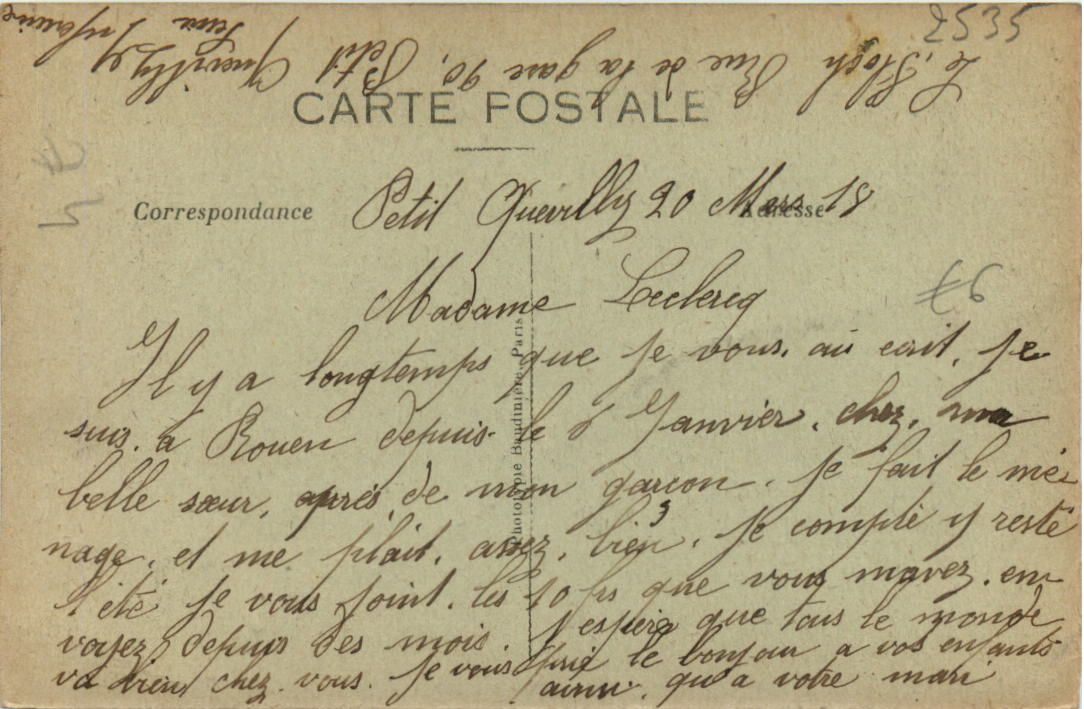 2535
Le Floch Rue de la gare 90, Petit
Quevilly
Seine
Inférieure
CARTE POSTALE
Correspondance
Adresse
Petit Quevilly 20 Mars 18
76
Madame Leclercq
Il y a longtemps que je vous. au ecrit, je
suis. a Rouen depuis le 8 Janvier. chez. ma
belle sœur, aprés de mon garcon. je fait le mé-
nage. et me plait. assez. bien. je compte y resté
l'eté je vous joint. les 10 fs que vous mavez. en
voyez depuis des mois. j'espére que tous le monde
va bien chez. vous. je vous prie le bonjour a vos enfants
ainsi. qu'a votre mari
Phototypie Baudinière, Paris